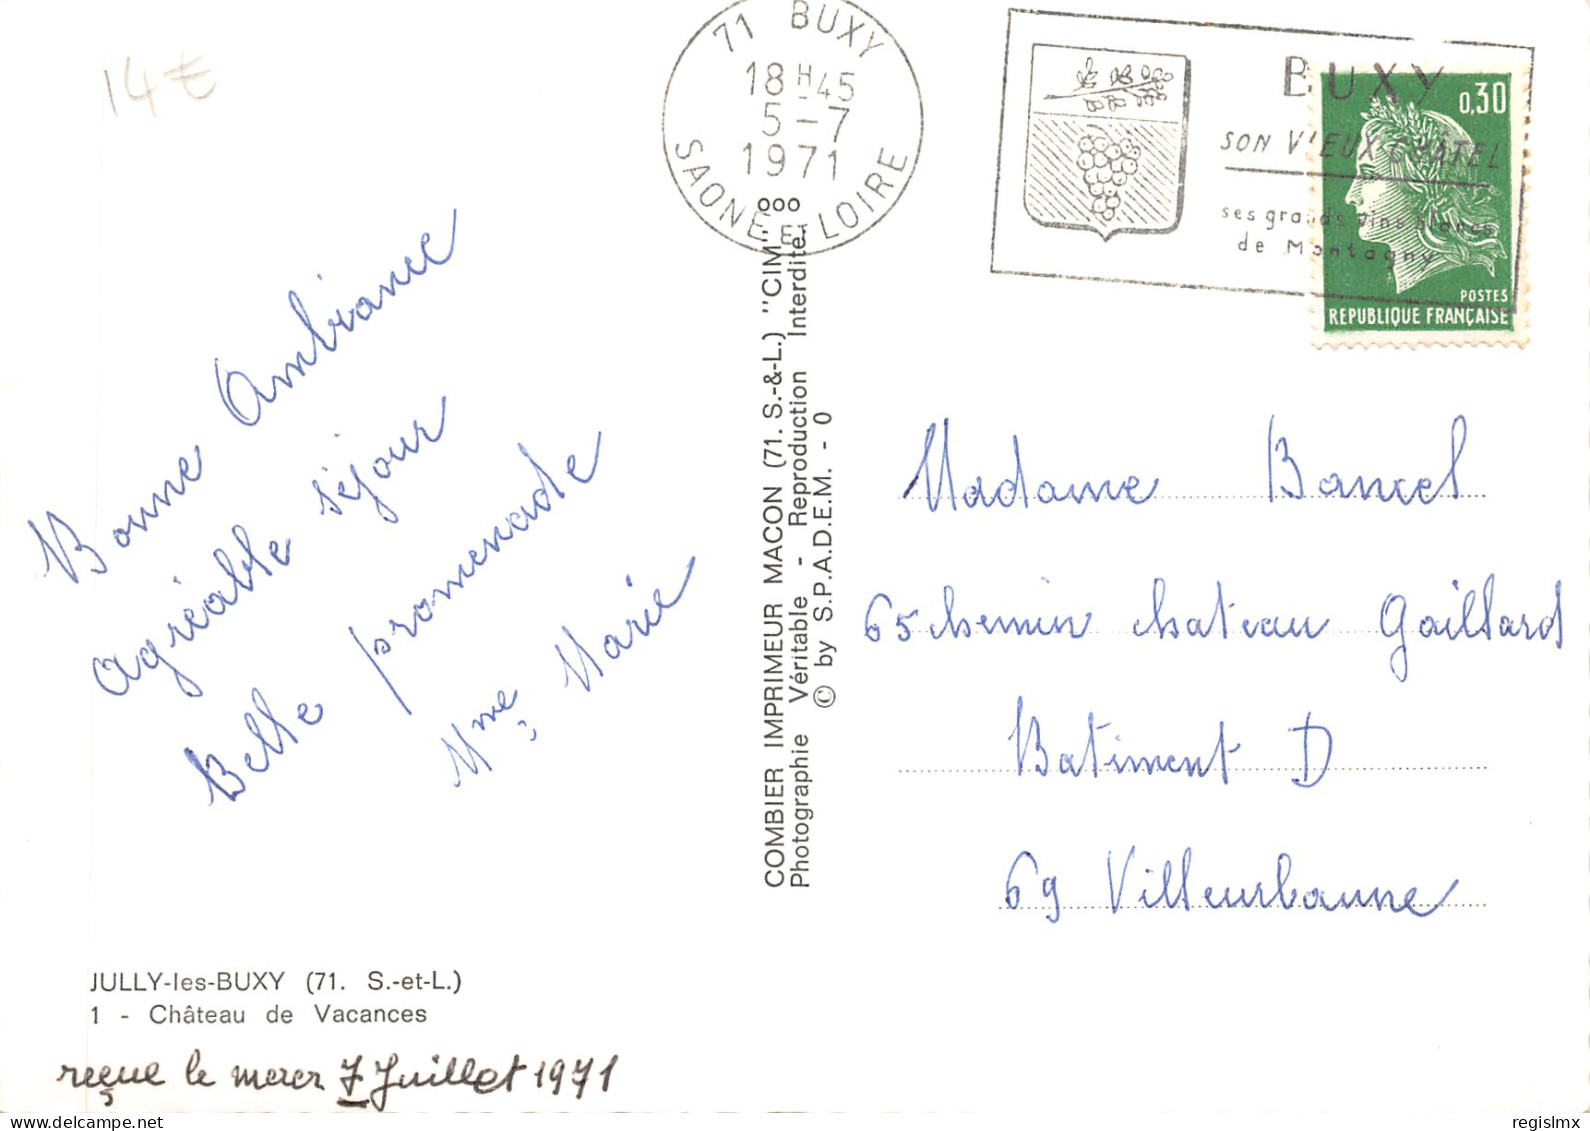 14 €
71 BUXY
18 H 45
5-7
1971
SAONE ET LOIRE
BUXY
SON VIEUX CHÂTEL
ses grands vins blancs
de Montagny
0,30
POSTES
REPUBLIQUE FRANÇAISE
Bonne Ambiance
Agréable séjour
Belle promenade
Mme Marie
COMBIER IMPRIMEUR MACON (71. S.-&-L.) "CIM"
Photographie Véritable - Reproduction Interdite.
© by S.P.A.D.E.M. - 0
Madame Bancel
65 chemin chateau Gaillard
Batiment D
69 Villeurbanne
JULLY-les-BUXY (71. S.-et-L.)
1 - Château de Vacances
reçue le mercr 7 Juillet 1971
regislmx